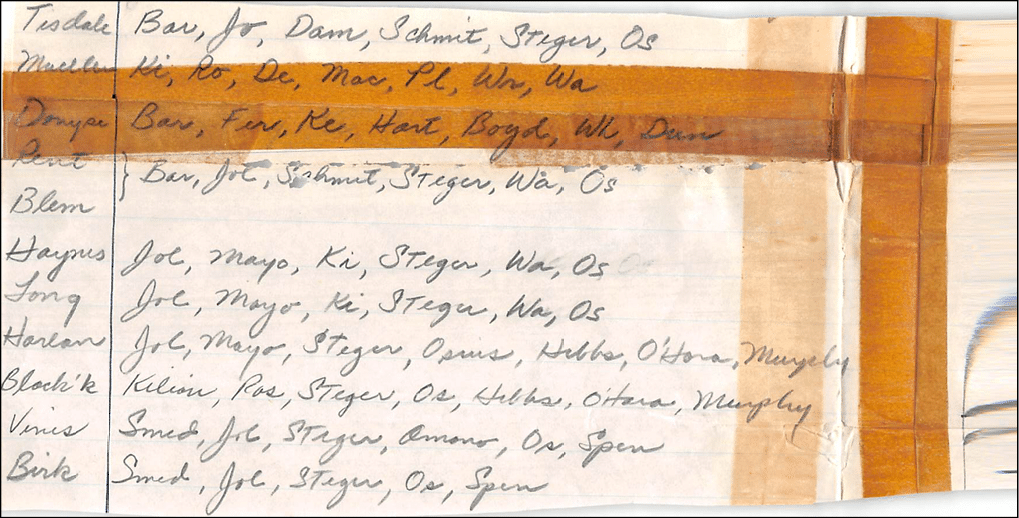 Tisdale Bar, Jo, Dam, Schmit, Steger, Os
Muellen Ki, Ro, De, Mac, Pl, Wr, Wa
Donyse Bar, Fer, Ke, Hart, Boyd, Wh, Dun
Rent
Bar, Jol, Schmit, Steger, Wa, Os
Blem
Haynes Jol, Mayo, Ki, Steger, Wa, Os
Long Jol, Mayo, Ki, Steger, Wa, Os
Harlan Jol, Mayo, Steger, Osius, Hibbs, O'Hara, Murphy
Black'k Kilian, Ros, Steger, Os, Hibbs, O'Hara, Murphy
Vines Smed, Jol, Steger, Omono, Os, Spen
Birk Smed, Jol, Steger, Os, Spen